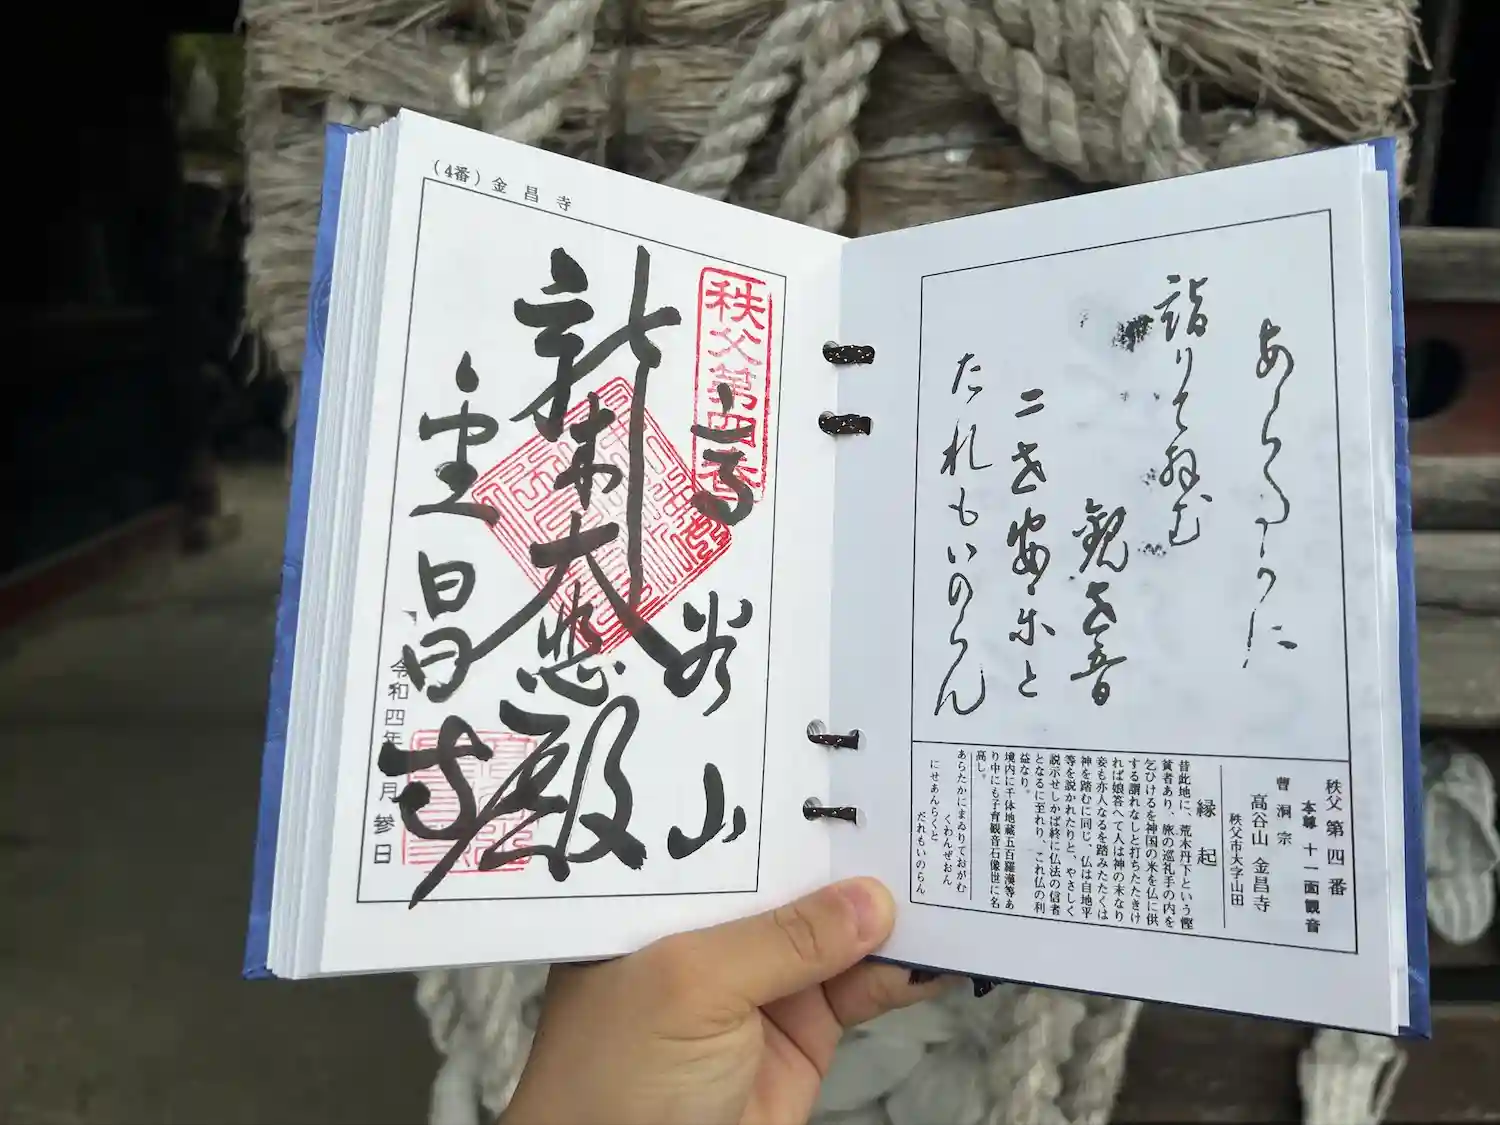 あらたかに
詣りておがむ
観世音
二世安楽と
たれもいのらん
秩父第四番
本尊 十一面観音
曹洞宗
高谷山 金昌寺
秩父市大字山田
縁起
昔此地に、荒木丹下という慳
貪者あり、旅の巡礼手の内を
乞ひけるを神国の米を仏に供
する謂れなしと打ちたたきけ
れば娘答へて人は神の末なり
妾も亦人なるを踏みたたくは
神を踏むに同じ、仏は自地平
等を説かれたりと、やさしく
説示せしかば終に仏法の信者
となるに至れり、これ仏の利
益なり。
境内に千体地蔵五百羅漢等あ
り中にも子育観音石像世に名
高し。
あらたかにまゐりておがむ
くわんぜおん
にせあんらくと
だれもいのらん
(4番)金昌寺
秩父第四番
高谷山
新木大悲殿
金昌寺
令和四年 月参日